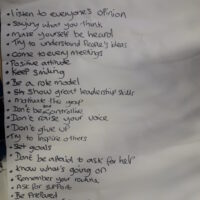 • Listen to everyone's opinion
• Saying what you think
• Make yourself be heard
• Try to understand People's ideas
• Come to every meetings
• Positive attitude
• Keep smiling
• Be a role model
• Show great leadership skills
• Motivate the group
• Don't be controlling
• Don't raise your voice
• Don't give up
• Try to inspire others
• Set goals
• Don't be afraid to ask for help
• Know what's going on
• Remember your routine
• Ask for support
• Be Prepared